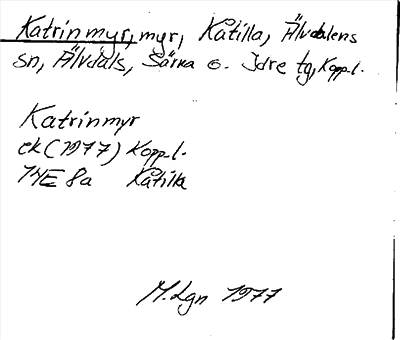 Katrinmyr, myr, Kåtilla, Älvdalens
sn, Älvdals, Särna o. Idre tg, Kopp.l.
Katrinmyr
ek (1977) Kopp.l.
14E 8a Kåtilla
M.Lgn 1977